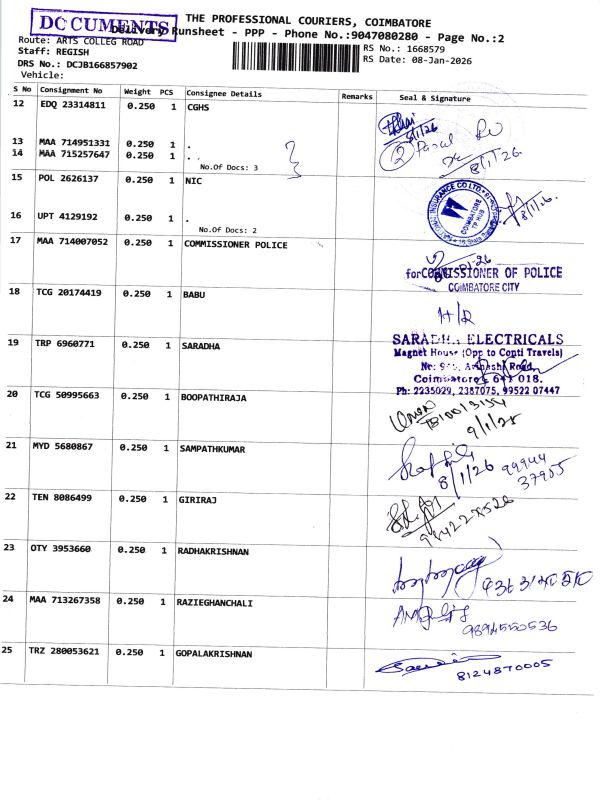 DOCUMENTS
THE PROFESSIONAL COURIERS, COIMBATORE
Delivery Runsheet - PPP - Phone No.:9047080280 - Page No.:2
Route: ARTS COLLEG ROAD
RS No.: 1668579
Staff: REGISH
RS Date: 08-Jan-2026
DRS No.: DCJB166857902
Vehicle:
S No Consignment No Weight PCS Consignee Details Remarks Seal & Signature
12 EDQ 23314811 0.250 1 CGHS
8/1/26
13 MAA 714951331 0.250 1 .
14 MAA 715257647 0.250 1 .
8/1/26
No.Of Docs: 3
15 POL 2626137 0.250 1 NIC
NATIONAL INSURANCE CO LTD.
COIMBATORE
TP HUB
8/1/26.
16 UPT 4129192 0.250 1 .
No.Of Docs: 2
17 MAA 714007052 0.250 1 COMMISSIONER POLICE
for COMMISSIONER OF POLICE
COIMBATORE CITY
18 TCG 20174419 0.250 1 BABU
H/R
19 TRP 6960771 0.250 1 SARADHA
SARADHA ELECTRICALS
Magnet House (Opp to Conti Travels)
Avinashi Road,
Coimbatore - 641 018.
Ph: 2235029, 2387075, 99522 07447
20 TCG 50995663 0.250 1 BOOPATHIRAJA
21 MYD 5680867 0.250 1 SAMPATHKUMAR
8/1/26 99944
37985
22 TEN 8086499 0.250 1 GIRIRAJ
23 OTY 3953660 0.250 1 RADHAKRISHNAN
24 MAA 713267358 0.250 1 RAZIEGHANCHALI
9894550536
25 TRZ 280053621 0.250 1 GOPALAKRISHNAN
8124870005